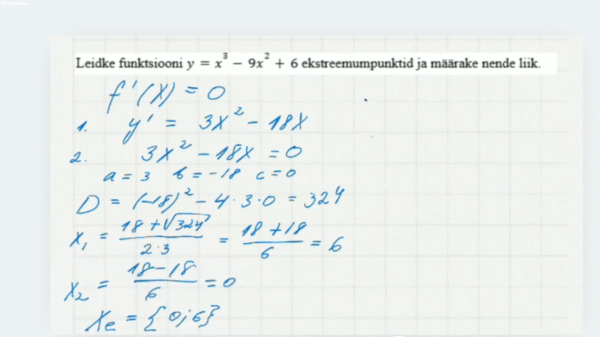 Leidke funktsiooni y = x³ − 9x² + 6 ekstreemumpunktid ja määrake nende liik.
f'(x) = 0
1. y' = 3x² − 18x
2. 3x² − 18x = 0
a = 3 b = −18 c = 0
D = (−18)² − 4 · 3 · 0 = 324
x₁ = (18 + √324) / (2·3) = (18 + 18) / 6 = 6
x₂ = (18 − 18) / 6 = 0
Xe = {0; 6}